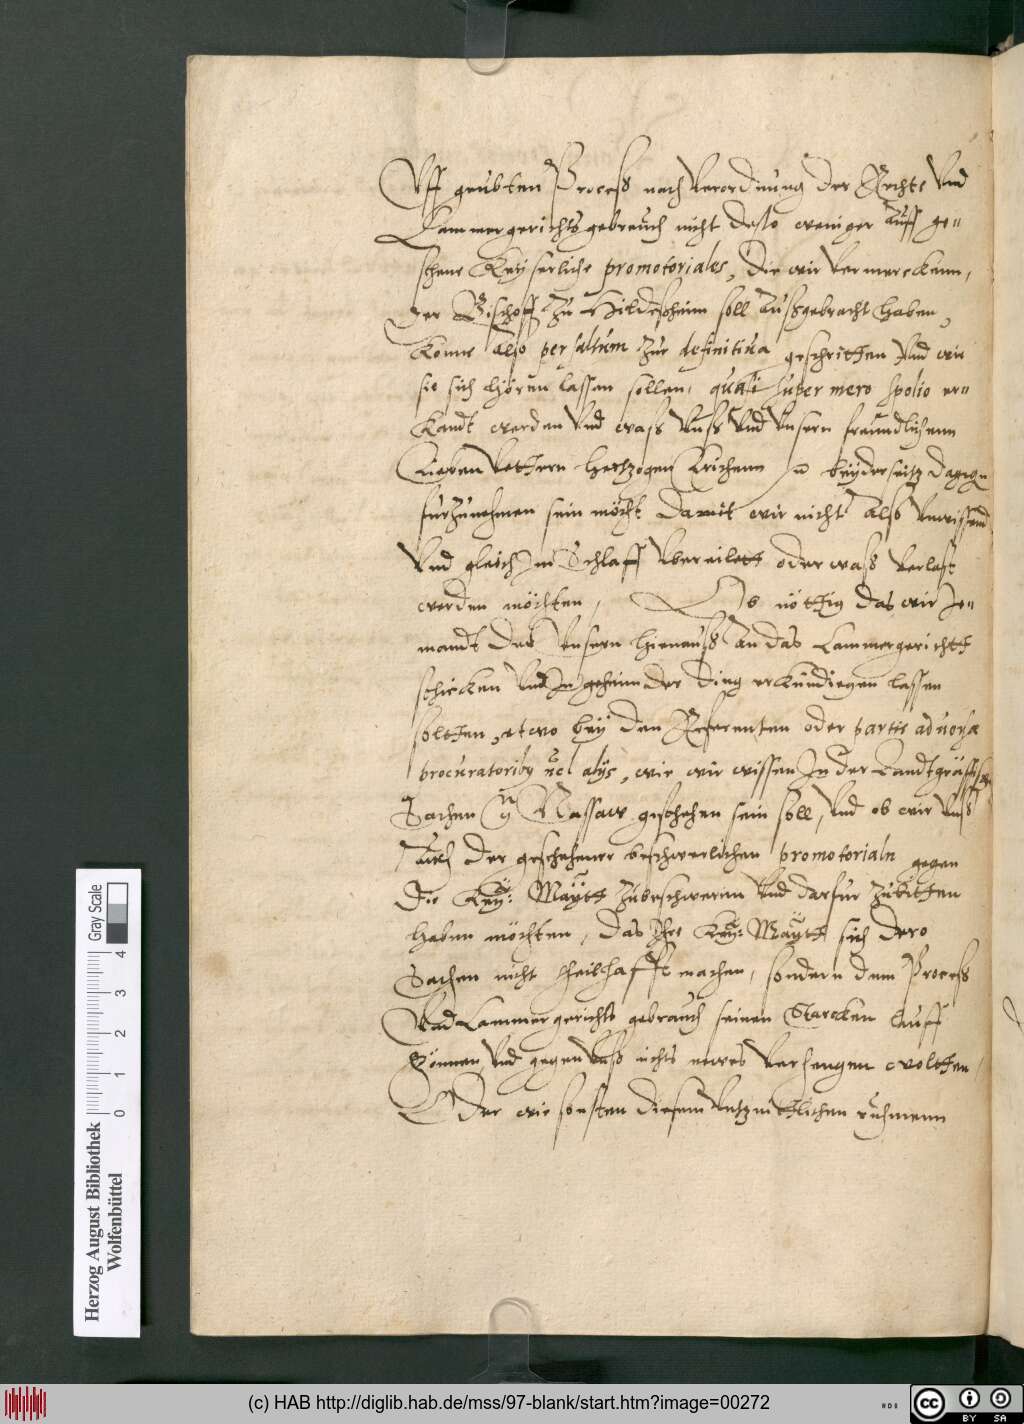 Vff geubten Process nach verordnung der Rechte vnd
Cammergerichts gebrauch nicht desto weniger auff ge=
schene Keyserliche promotoriales, die wir vermerckenn,
der Bischoff zu Hildesheim soll außgebracht haben,
Konne also per saltum zur definitiua geschritten vnd wie
sie sich hören lassen sollen, quasi super mero spolio er=
Kandt werden vnd waß vnß vnd vnsern freundlichenn
Lieben Vettern Hertzogen Erichenn beyderseitz dagegen
furzunehmen sein möcht damit wir nicht alß vnwissend
vnd gleich Im Schlaff vbereilett oder waß verlast
werden möchten, Ob nöttig das wir Je=
mandt der vnsern hienauß an das Cammergerichtt
schicken vnd In geheim der ding erkündiegen lassen
soltten, etwo bey den Referenten oder partis aduersæ
procuratoribus vel alijs, wie wir wissen In der Landtgräffischen
Sachen Nassaw geschehen sein soll, vnd ob wir vnß
auch der geschehener beschwerlichen promotorialn gegen
die Key: Maytt zubeschweren vnd darfur zubitten
haben möchten, das Ihre Key: Maytt sich dero
Sachen nicht theilhafft machen, sondern dem Process
vnd Cammergerichts gebrauch seinen Starcken lauff
Gönnen vnd gegen vnß nichts newes verhengen woltten,
Oder wie sonsten diesem vnzeittlichen ruhmenn
(c) HAB http://diglib.hab.de/mss/97-blank/start.htm?image=00272
Herzog August Bibliothek
Wolfenbüttel
0 1 2 3 4
Gray Scale
cc BY SA